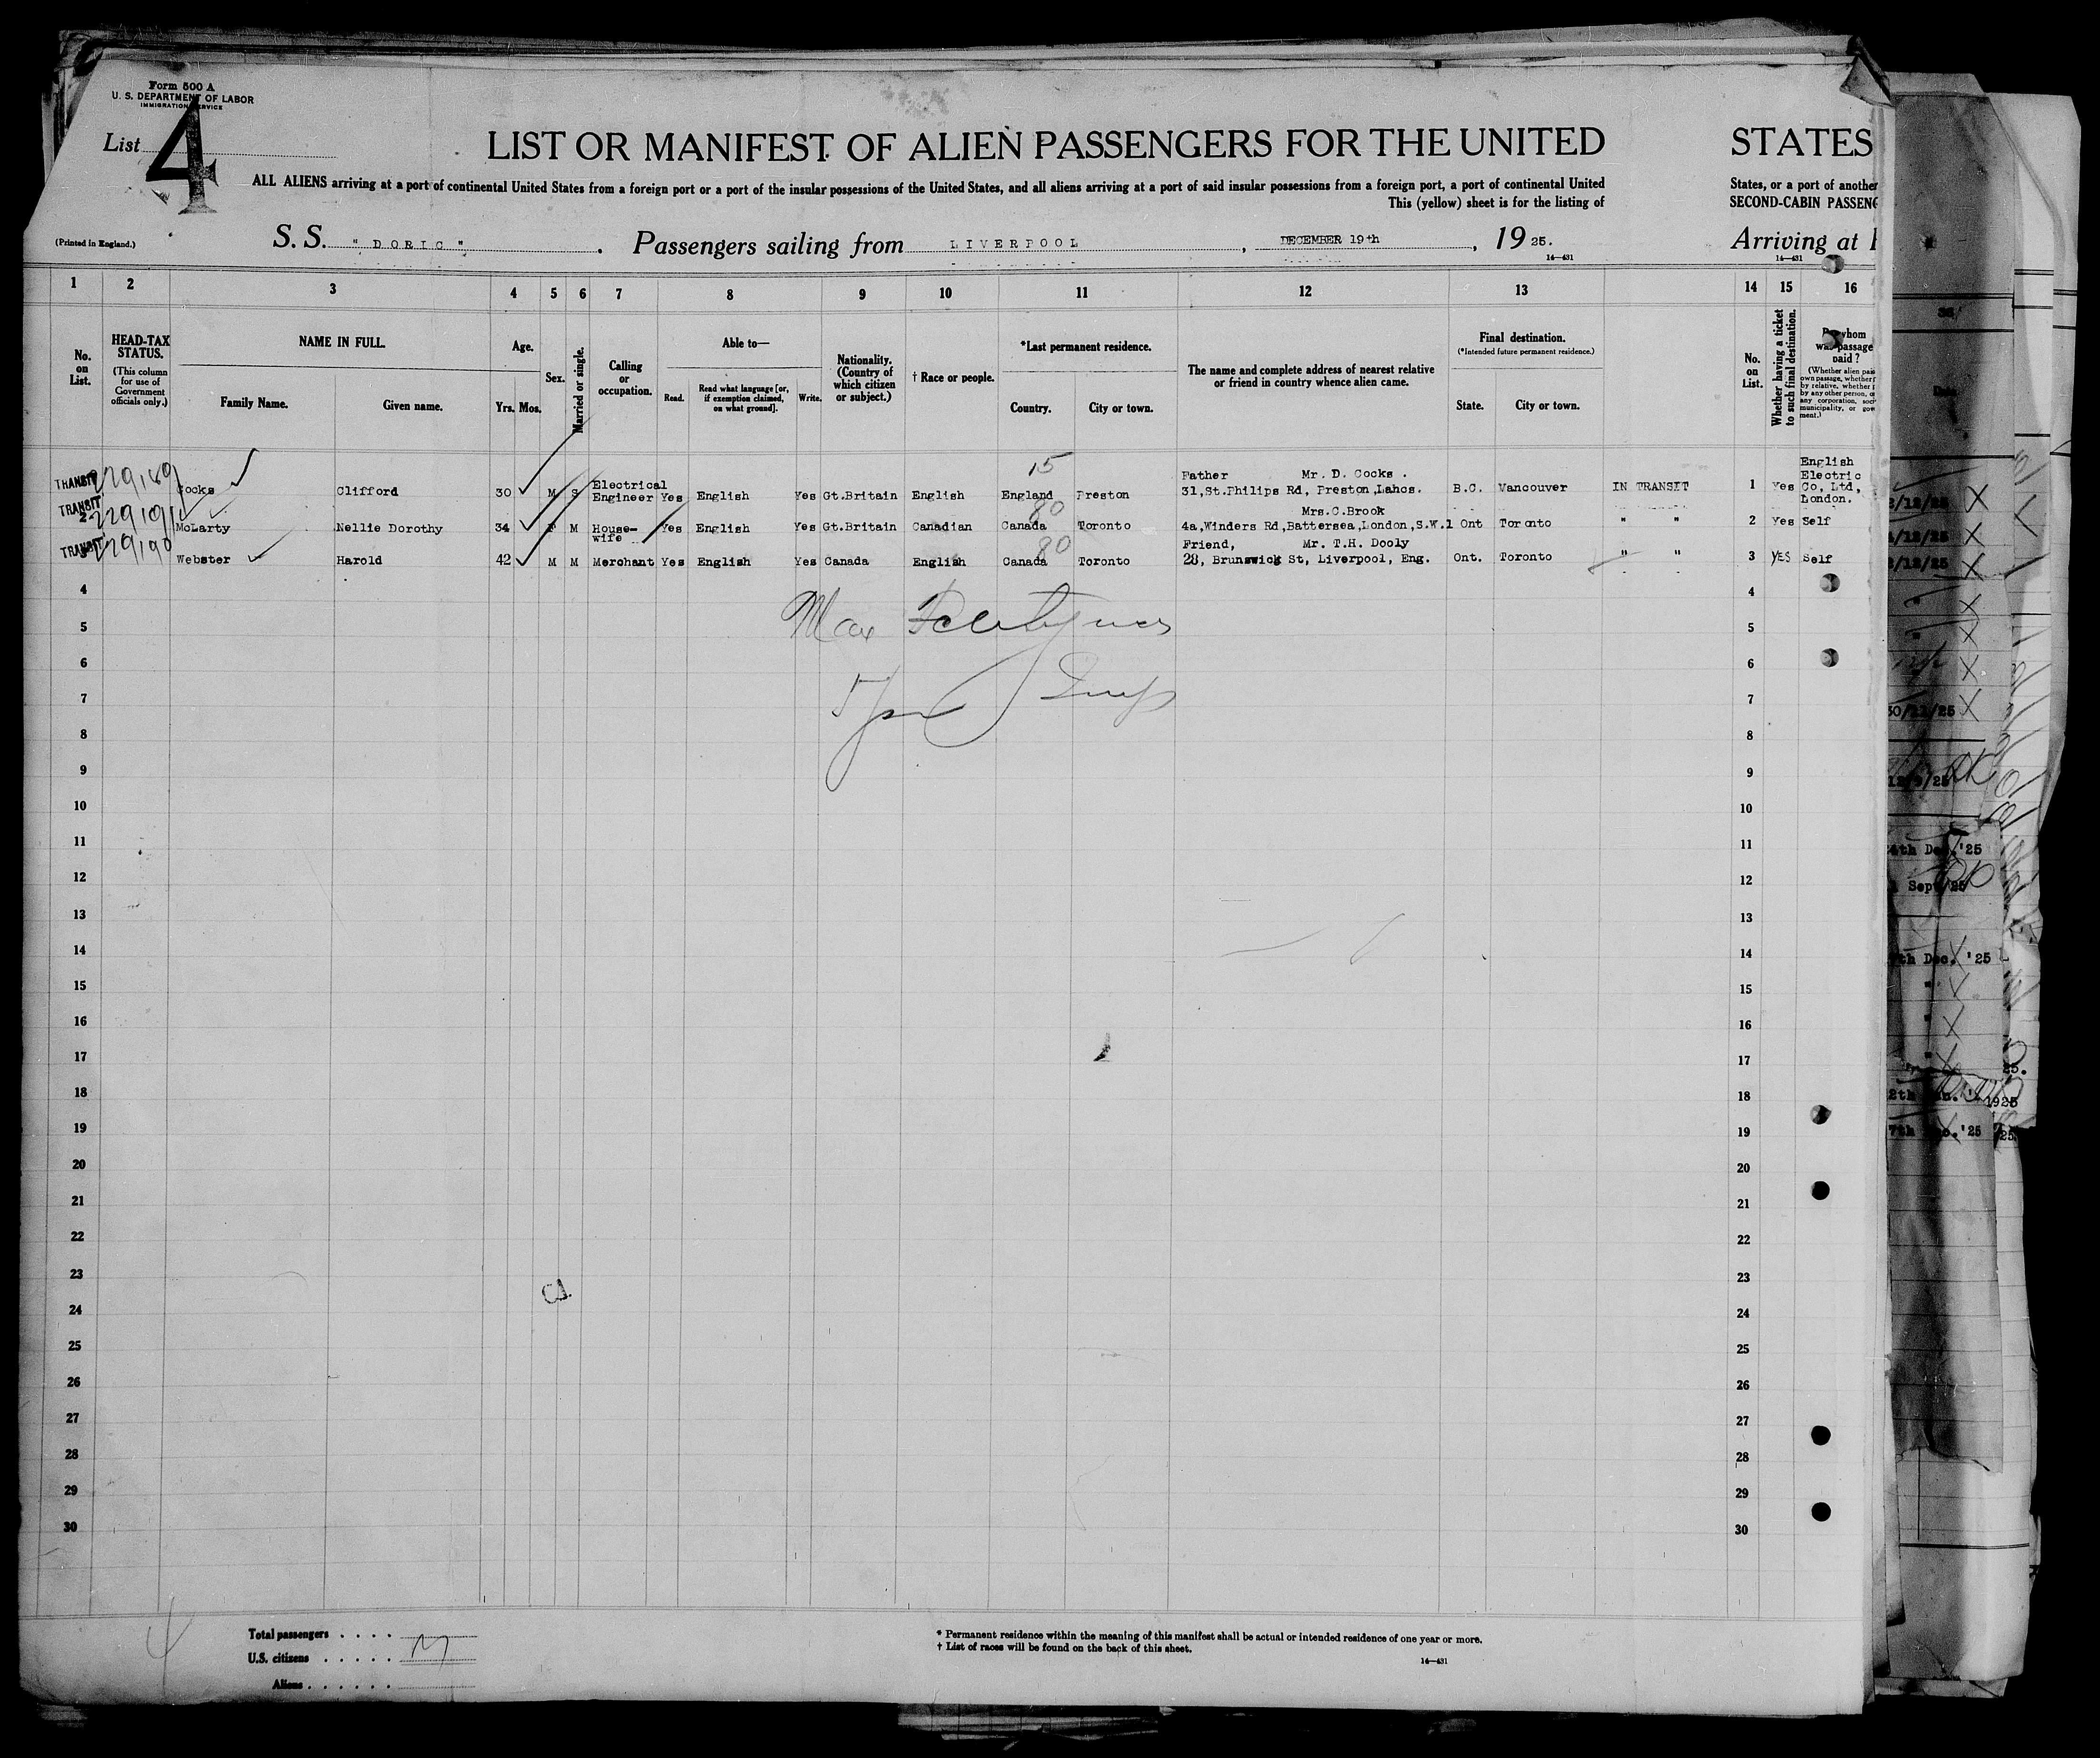 Form 500 A
U. S. DEPARTMENT OF LABOR
IMMIGRATION SERVICE
List 4
LIST OR MANIFEST OF ALIEN PASSENGERS FOR THE UNITED STATES
ALL ALIENS arriving at a port of continental United States from a foreign port or a port of the insular possessions of the United States, and all aliens arriving at a port of said insular possessions from a foreign port, a port of continental United States, or a port of another
This (yellow) sheet is for the listing of SECOND-CABIN PASSENG
(Printed in England.)
S. S. "DORIC". Passengers sailing from LIVERPOOL, DECEMBER 19th, 1925. Arriving at
14—431 14—431
1 2 3 4 5 6 7 8 9 10 11 12 13 14 15 16
No. on List.
HEAD-TAX STATUS.
(This column for use of Government officials only.)
NAME IN FULL.
Family Name. Given name.
Age.
Yrs. Mos.
Sex.
Married or single.
Calling or occupation.
Able to—
Read. Read what language [or, if exemption claimed, on what ground]. Write.
Nationality. (Country of which citizen or subject.)
† Race or people.
*Last permanent residence.
Country. City or town.
The name and complete address of nearest relative or friend in country whence alien came.
Final destination.
(*Intended future permanent residence.)
State. City or town.
No. on List.
Whether having a ticket to such final destination.
By whom was passage paid?
(Whether alien paid own passage, whether by relative, whether by any other person, or any corporation, municipality, or
TRANSIT 229,189 Cocks Clifford 30 M S Electrical Engineer Yes English Yes Gt.Britain English England Preston Father Mr. D. Cocks . 31,St.Philips Rd, Preston,Lahcs. B.C. Vancouver IN TRANSIT 1 Yes English Electric Co, Ltd, London.
15
TRANSIT 2 McLarty Nellie Dorothy 34 F M House-wife Yes English Yes Gt.Britain Canadian Canada Toronto Mrs.C.Brook 4a,Winders Rd,Battersea,London,S.W.1 Ont Toronto " " 2 Yes Self
80
TRANSIT 229,190 Webster Harold 42 M M Merchant Yes English Yes Canada English Canada Toronto Friend, Mr. T.H. Dooly 28, Brunswick St, Liverpool, Eng. Ont. Toronto " " 3 YES Self
80
4 4
5 5
6 6
7 7
8 8
9 9
10 10
11 11
12 12
13 13
14 14
15 15
16 16
17 17
18 18
19 19
20 20
21 21
22 22
23 23
24 24
25 25
26 26
27 27
28 28
29 29
30 30
Total passengers . . . .
U.S. citizens . . . . .
Aliens . . . . . .
* Permanent residence within the meaning of this manifest shall be actual or intended residence of one year or more.
† List of races will be found on the back of this sheet.
14—431